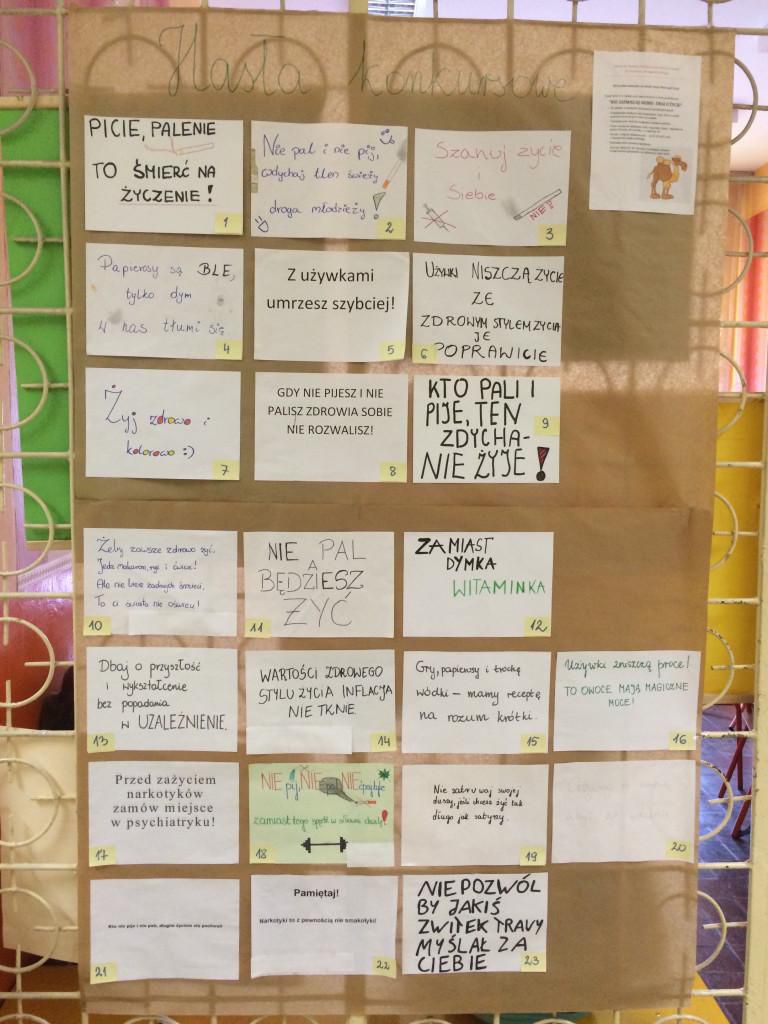 Hasła konkursowe
PICIE, PALENIE
TO ŚMIERĆ NA
ŻYCZENIE!
1
Nie pal i nie pij,
oddychaj tlen świeży
droga młodzieży!
2
Szanuj życie
i
Siebie
NIE!!
3
Papierosy są BLE,
tylko dym
w nas tłumi się.
4
Z używkami
umrzesz szybciej!
5
UŻYWKI NISZCZĄ ŻYCIE
ZE
ZDROWYM STYLEM ŻYCIA
JE
POPRAWICIE
6
Żyj zdrowo i
kolorowo :)
7
GDY NIE PIJESZ I NIE
PALISZ ZDROWIA SOBIE
NIE ROZWALISZ!
8
KTO PALI I
PIJE, TEN
ZDYCHA-
NIE ŻYJE!
9
Żeby zawsze zdrowo żyć,
Jedz makaron, ryż i ćwicz!
Ale nie bierz żadnych śmieci,
To ci światło nie oświeci!
10
NIE PAL
A
BĘDZIESZ
ŻYĆ
11
ZAMIAST
DYMKA
WITAMINKA
12
Dbaj o przyszłość
i wykształcenie
bez popadania
w UZALEŻNIENIE.
13
WARTOŚCI ZDROWEGO
STYLU ŻYCIA INFLACJA
NIE TKNIE.
14
Gry, papierosy i trochę
wódki – mamy receptę
na rozum krótki.
15
Używki zniszczą procę!
TO OWOCE MAJĄ MAGICZNE
MOCE!
16
Przed zażyciem
narkotyków
zamów miejsce
w psychiatryku!
17
NIE pij, NIE pal, NIE
zamiast tego
18
Nie zatruwaj swojej
duszy, jeśli chcesz żyć tak
długo jak
19
20
Kto nie pije i nie pali, długim życiem się pochwali
21
Pamiętaj!
Narkotyki to z pewnością nie smakołyki!
22
NIE POZWÓL
BY JAKIŚ
ZWITEK TRAWY
MYŚLAŁ ZA
CIEBIE
23